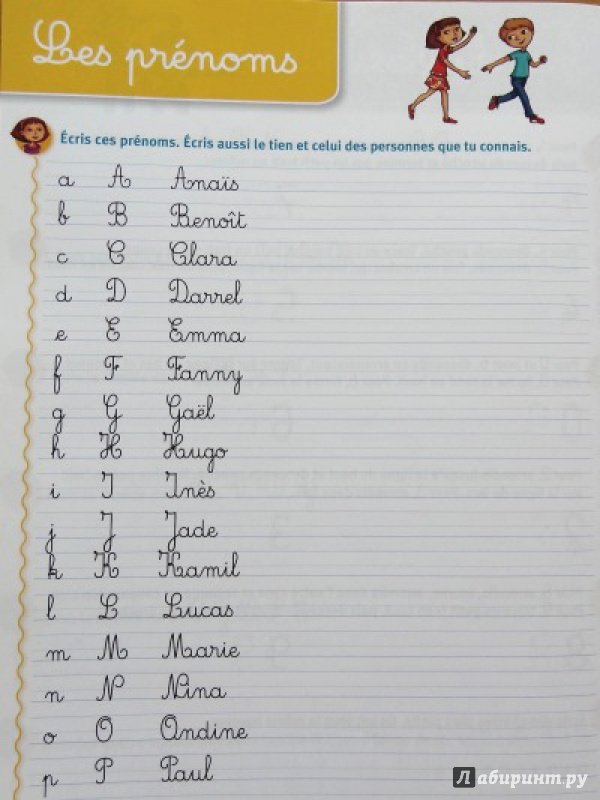 Les prénoms
Écris ces prénoms. Écris aussi le tien et celui des personnes que tu connais.
a A Anaïs
b B Benoît
c C Clara
d D Darrel
e E Emma
f F Fanny
g G Gaël
h H Hugo
i I Inès
j J Jade
k K Kamil
l L Lucas
m M Marie
n N Nina
o O Ondine
p P Paul
Лабиринт.ру